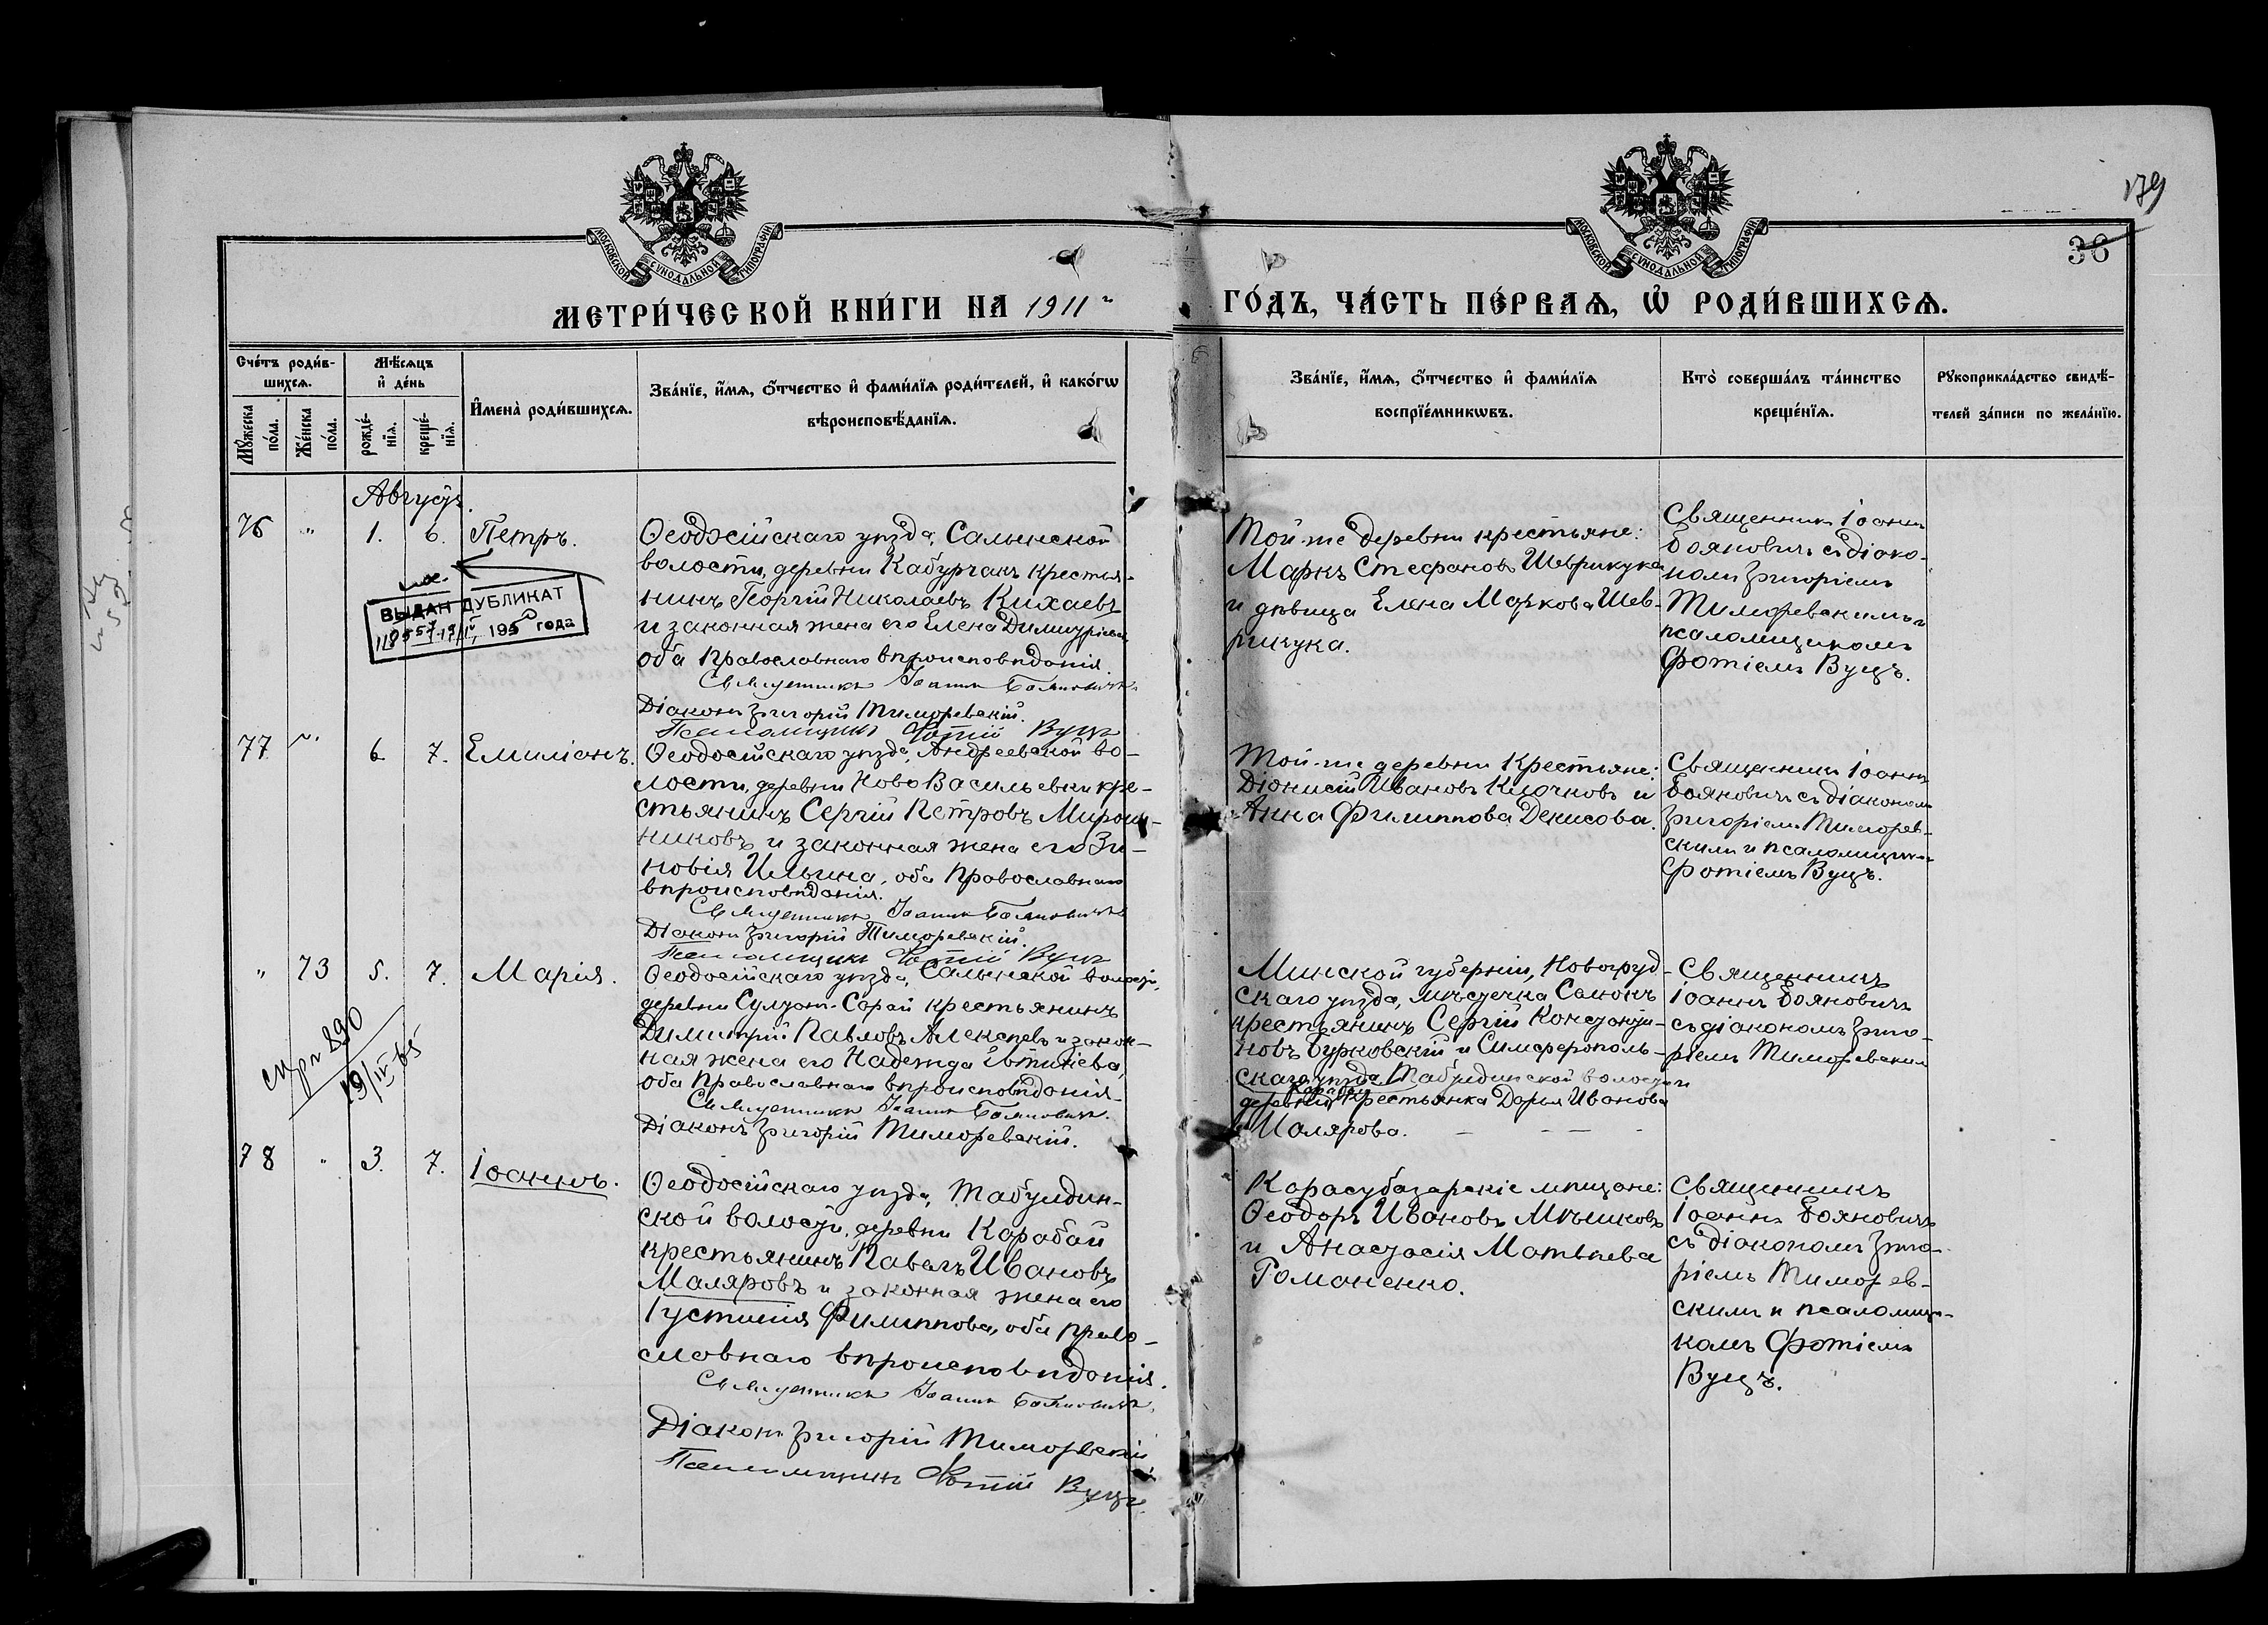 179
36
МОСКОВСКОЙ СѴНОДАЛЬНОЙ ТИПОГРАФІИ
МОСКОВСКОЙ СѴНОДАЛЬНОЙ ТИПОГРАФІИ
МЕТРИ́ЧЕСКОЙ КНИ́ГИ НА 1911 г
ГО́ДЪ, ЧА́СТЬ ПЕ́РВАѦ, Ѡ҆ РОДИ́ВШИХСѦ.
Сче́тъ роди́в-
шихсѧ.
Мѣ́сѧцъ
и҆ де́нь
Мꙋ́жеска
по́ла.
Же́нска
по́ла.
рожде́-
нїѧ.
креще́-
нїѧ.
И҆мена̀ роди́вшихсѧ.
Зва́нїе, и҆́мѧ, ѻ҆́тчество и҆ фами́лїѧ роди́телей, и҆ како́гѡ
вѣроисповѣ́данїѧ.
Зва́нїе, и҆́мѧ, ѻ҆́тчество и҆ фами́лїѧ
воспрїе́мникѡвъ.
Кто̀ соверша́лъ та́инство
креще́нїѧ.
Рꙋкоприкла́дство свидѣ́-
телей за́писи по жела́нїю.
Августъ.
76 " 1. 6. Петръ.
Ѳеодосійскаго уѣзда, Салынской
волости, деревни Кабурчакъ крестья-
нинъ Георгій Николаевъ Кихаевъ
и законная жена его Елена Димитріева
оба Православнаго вѣроисповѣданія
Священникъ Іоаннъ Бояновичъ
Діаконъ Григорій Тиморевскій.
Псаломщикъ Фотій Вуцъ
Той-же деревни крестьяне:
Маркъ Стефановъ Шеврикука
и дѣвица Елена Маркова Шев-
рикука.
Священникъ Іоаннъ
Бояновичъ съ діако-
номъ Григоріемъ
Тиморевскимъ и
псаломщикомъ
Фотіемъ Вуцъ.
ВЫДАН ДУБЛИКАТ
195 года
77 " 6. 7. Емиліанъ.
Ѳеодосійскаго уѣзда, Андреевской во-
лости, деревни Ново Васильевки кре-
стьянинъ Сергій Петровъ Мирош-
никовъ и законная жена его Зи-
новія Ильина, оба Православнаго
вѣроисповѣданія.
Священникъ Іоаннъ Бояновичъ
Діаконъ Григорій Тиморевскій.
Псаломщикъ Фотій Вуцъ
Той-же деревни Крестьяне:
Діонисій Ивановъ Клочковъ и
Анна Филиппова Денисова.
Священникъ Іоаннъ
Бояновичъ съ діакономъ
Григоріемъ Тиморев-
скимъ и псаломщикомъ
Фотіемъ Вуцъ.
" 73 5. 7. Марія.
Ѳеодосійскаго уѣзда, Салынской волости,
деревни Султан-Сарай крестьянинъ
Димитрій Павловъ Алексѣевъ и закон-
ная жена его Надежда Фотіева,
оба Православнаго вѣроисповѣданія.
Священникъ Іоаннъ Бояновичъ.
Діаконъ Григорій Тиморевскій.
Минской губерніи, Новогруд-
скаго уѣзда, мѣстечка
крестьянинъ Сергій Константи-
новъ Бурковскій и Симферополь-
скаго уѣзда Табулдинской волости
Карабай
деревни крестьянка Дарья Иванова
Малярова.
Священникъ
Іоаннъ Бояновичъ
съ діакономъ Григо-
ріемъ Тиморевскимъ
890
19/IV 65
78 " 3. 7. Іоаннъ.
Ѳеодосійскаго уѣзда, Табулдин-
ской волости, деревни Карабай
крестьянинъ Павелъ Ивановъ
Маляровъ и законная жена его
Іустинія Филиппова, оба право-
славнаго вѣроисповѣданія.
Священникъ Іоаннъ Бояновичъ.
Діаконъ Григорій Тиморевскій
Псаломщикъ Фотій Вуцъ.
Карасубазарскіе мѣщане:
Ѳеодоръ Ивановъ Мѣшковъ
и Анастасія Матвѣева
Романенко.
Священникъ
Іоаннъ Бояновичъ
съ діакономъ Григо-
ріемъ Тиморев-
скимъ и псаломщи-
комъ Фотіемъ
Вуцъ.